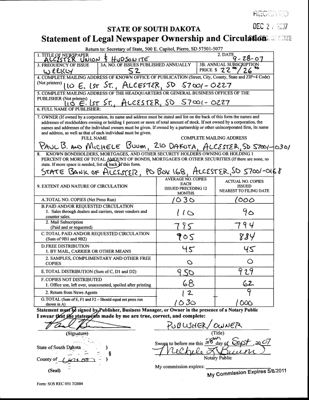 RECEIVED
DEC 2 2007
STATE OF SOUTH DAKOTA
Statement of Legal Newspaper Ownership and Circulation
Return to: Secretary of State, 500 E. Capitol, Pierre, SD 57501-5077
1. TITLE OF NEWSPAPER
ALCESTER UNION & HUDSONITE
2. DATE
9-28-07
3. FREQUENCY OF ISSUE
WEEKLY
3A. NO. OF ISSUES PUBLISHED ANNUALLY
52
3B. ANNUAL SUBSCRIPTION
PRICE $ 22.00/26.00
4. COMPLETE MAILING ADDRESS OF KNOWN OFFICE OF PUBLICATION (Street, City, County, State and ZIP+4 Code)
(Not printers)
110 E. 1ST ST., ALCESTER, SD 57001-0227
5. COMPLETE MAILING ADDRESS OF THE HEADQUARTERS OF GENERAL BUSINESS OFFICES OF THE
PUBLISHER (Not printers)
110 E. 1ST ST., ALCESTER, SD 57001-0227
6. FULL NAME OF PUBLISHER:
7. OWNER (If owned by a corporation, its name and address must be stated and list on the back of this form the names and
addresses of stockholders owning or holding 1 percent or more of total amount of stock. If not owned by a corporation, the
names and addresses of the individual owners must be given. If owned by a partnership or other unincorporated firm, its name
and address, as well as that of each individual must be given.
FULL NAME
COMPLETE MAILING ADDRESS
PAUL B. AND MICHELE BUUM, 210 DAKOTA, ALCESTER, SD 57001-0301
8. KNOWN BONDHOLDERS, MORTGAGES, AND OTHER SECURITY HOLDERS OWNING OR HOLDING 1
PERCENT OR MORE OF TOTAL AMOUNT OF BONDS, MORTGAGES OR OTHER SECURITIES (If there are none, so
state. If more space is needed, list on back of this form.
STATE BANK OF ALCESTER, PO BOX 168, ALCESTER, SD 57001-0168
9. EXTENT AND NATURE OF CIRCULATION
AVERAGE NO. COPIES
EACH
ISSUED PRECEDING 12
MONTHS
ACTUAL NO. COPIES
ISSUED
NEAREST TO FILING DATE
A. TOTAL NO. COPIES (Net Press Run)
1030
1000
B. PAID AND/OR REQUESTED CIRCULATION
1. Sales through dealers and carriers, street vendors and
counter sales.
110
90
2. Mail Subscription
(Paid and or requested)
795
794
C. TOTAL PAID AND/OR REQUESTED CIRCULATION
(Sum of 9B1 and 9B2)
905
884
D. FREE DISTRIBUTION
1. BY MAIL, CARRIER OR OTHER MEANS
45
45
2. SAMPLES, COMPLIMENTARY AND OTHER FREE
COPIES
0
0
E. TOTAL DISTRIBUTION (Sum of C, D1 and D2)
950
929
F. COPIES NOT DISTRIBUTED
1. Office use, left over, unaccounted, spoiled after printing
68
62
2. Return from News Agents
12
9
G. TOTAL (Sum of E, F1 and F2 - Should equal net press run
shown in A)
1030
1000
Statement must be signed by Publisher, Business Manager, or Owner in the presence of a Notary Public
I swear that the statements made by me are true, correct, and complete:
PUBLISHER/OWNER
(Signature)
(Title)
State of South Dakota )
§
County of )
(Seal)
Sworn to before me this 28th day of Sept 2007
Michele L. Buum
Notary Public
My commission expires:
My Commission Expires 5/8/2011
Form: SOS REC 051 7/2004